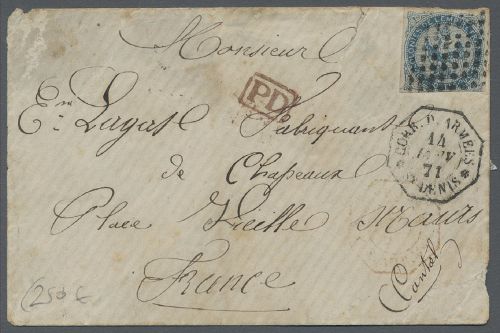 Monsieur
PD
Em. Lagas Fabriquant
CORR. D. ARMEES
14
JANV
71
ST DENIS
de
Chapeaux
Place Vieille Maurs
(Cantal)
France
250 €